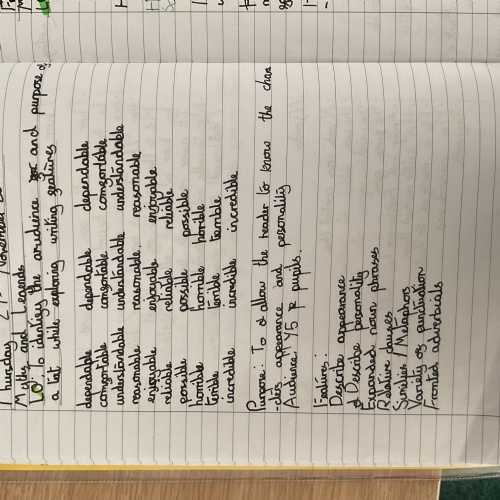 Thursday November
Myths and Legends
LO: To identify the audience and purpose of
a text while exploring writing features
dependable dependable dependable
comfortable comfortable comfortable
understandable understandable understandable
reasonable reasonable. reasonable
enjoyable enjoyable enjoyable
reliable reliable reliable
possible possible possible
horrible horrible horrible
terrible terrible terrible
incredible incredible incredible
Purpose: To allow the reader to know the char
-cters appearance and personality
Audience: Y5 pupils.
Features:
Describe appearance
Describe personality
Expanded noun phrases
Relative clauses
Similies / Metaphors
Variety of punctuation
Fronted adverbials